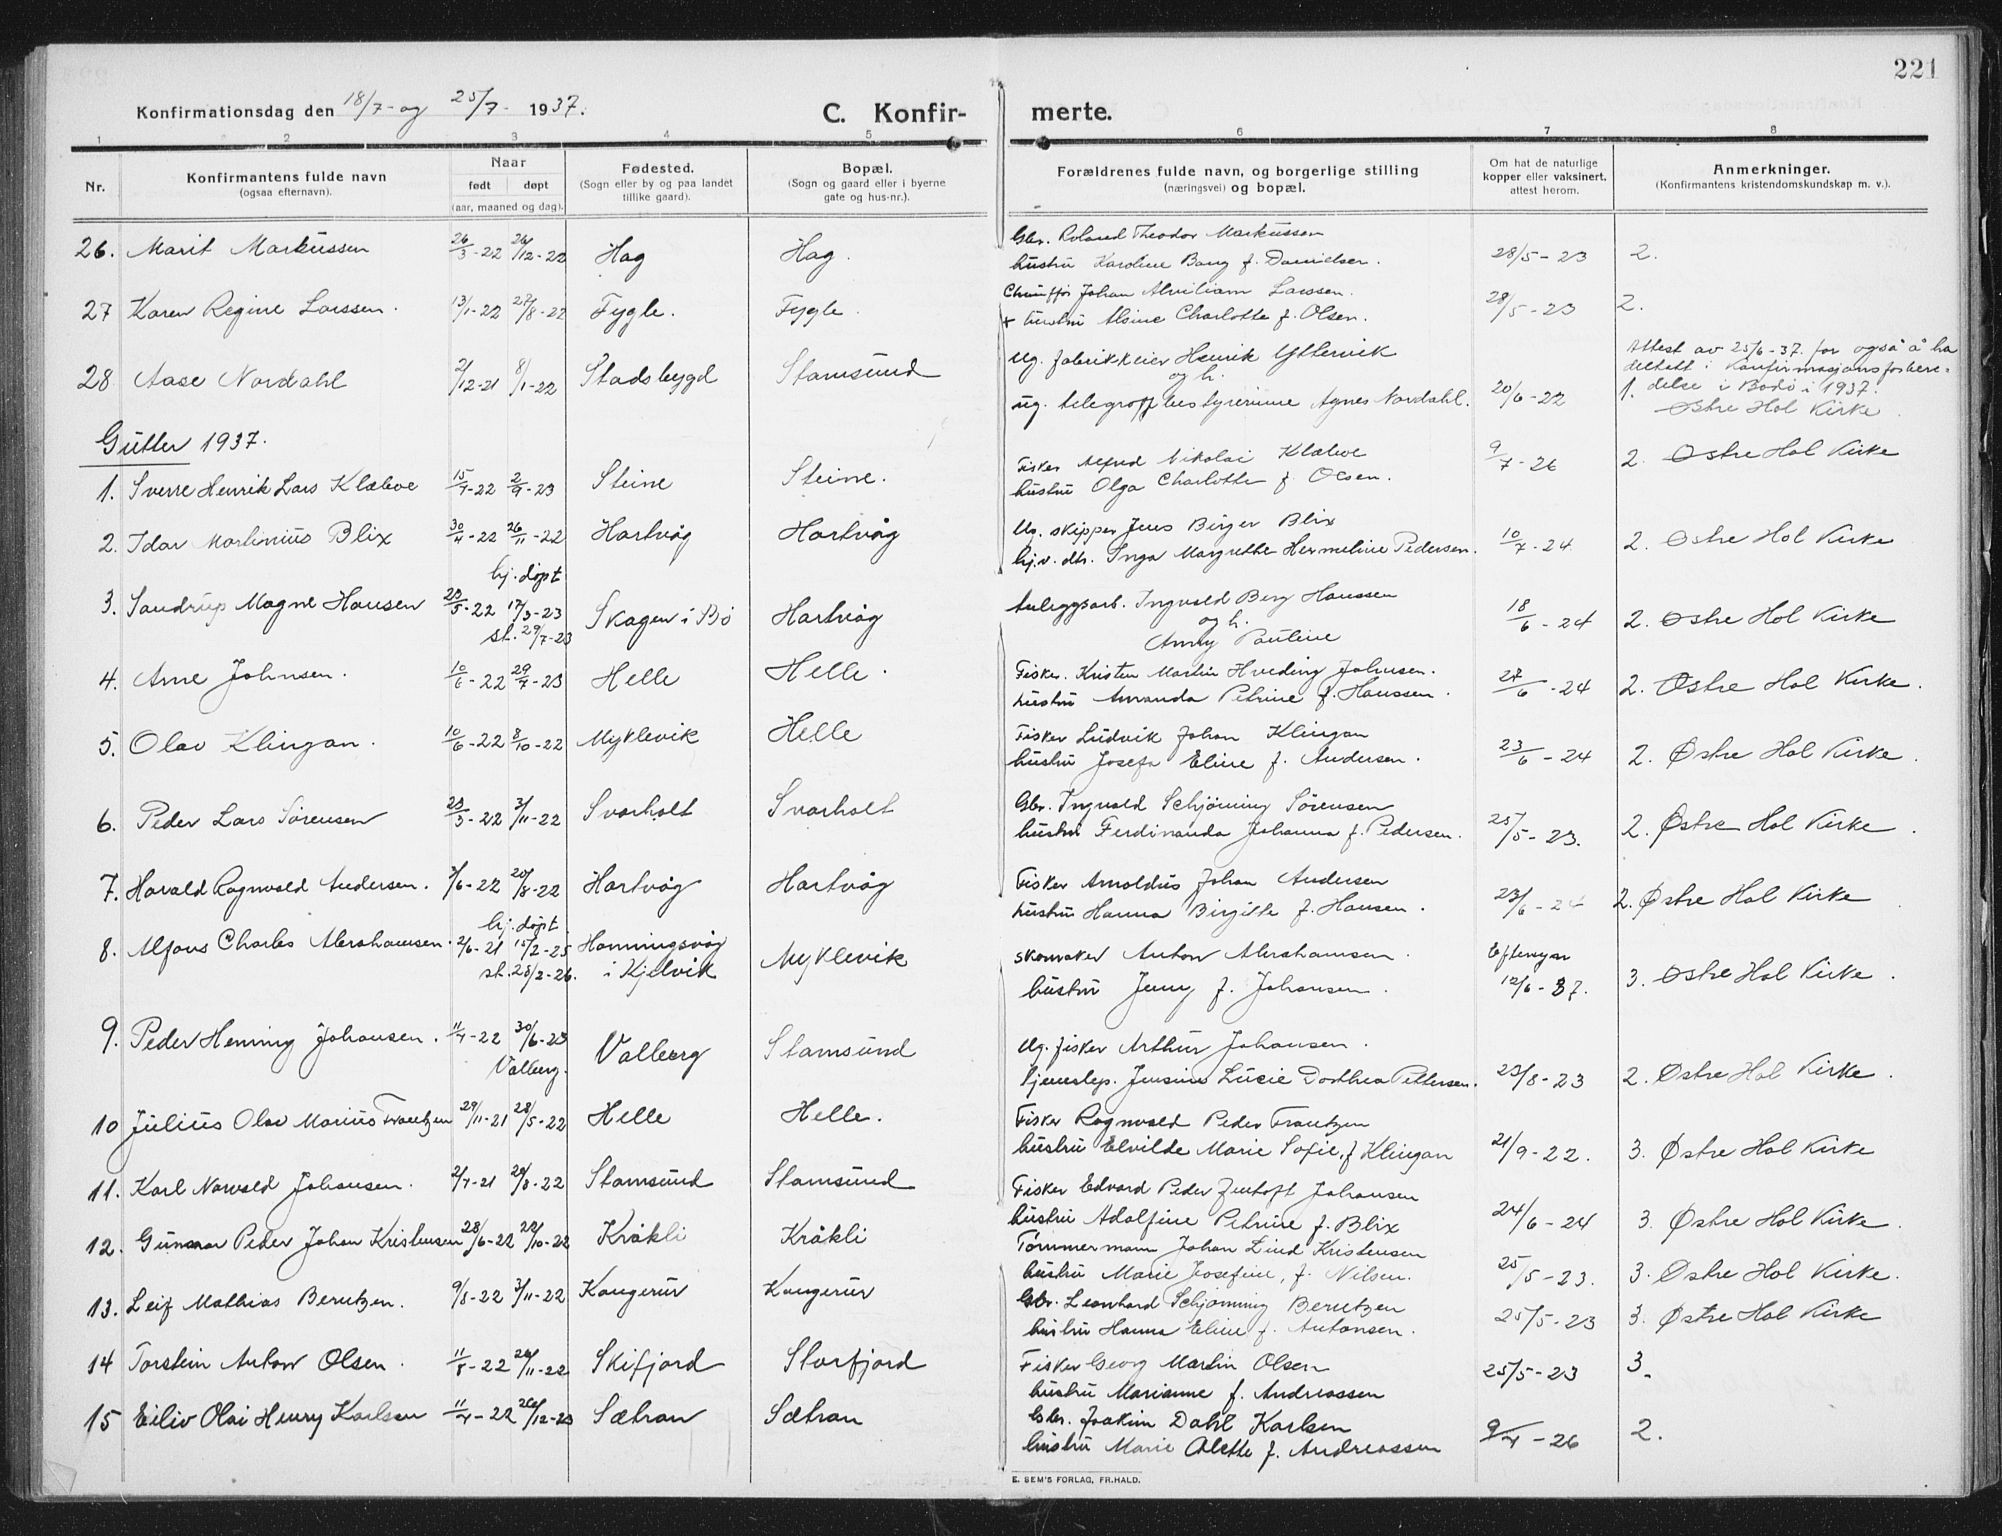 221
Konfirmationsdag den 18/7- og 25/7- 1937.
C. Konfir-
merte.
1 2 3 4 5 6 7 8
Nr.
Konfirmantens fulde navn
(ogsaa efternavn).
Naar
født døpt
(aar, maaned og dag).
Fødested.
(Sogn eller by og paa landet
tillike gaard).
Bopæl.
(Sogn og gaard eller i byerne
gate og hus-nr.).
Forældrenes fulde navn, og borgerlige stilling
(næringsvei) og bopæl.
Om hat de naturlige
kopper eller vaksinert,
attest herom.
Anmerkninger.
(Konfirmantens kristendomskundskap m. v.).
26. Marit Markussen 26/3-22 26/12-22 Hag Hag. Gbr. Roland Theodor Markussen
hustru Karoline Bang f. Danielsen. 28/5-23 2.
27 Karen Regine Larssen. 13/1-22 27/8-22 Fygle. Fygle. Chauffør Johan Larssen.
+ hustru Alsine Charlotte f. Olsen. 28/5-23 2.
28 Aase Nordahl 2/12-21 8/1-22 Stadsbygd Stamsund Ug. fabrikkeier Henrik Yttervik
og h.
ug. telegrafbestyrerinne Agnes Nordahl. 20/6-22 1.
Attest av 25/6-37. for også å ha
deltatt i Konfirmasjonsforbere-
delse i Bodø i 1937.
Østre Hol Kirke
Gutter 1937.
1. Sverre Henrik Lars Klæboe 15/7-22 2/9-23 Steine Steine. Fisker Alfred Nikolai Klæboe
hustru Olga Charlotte f. Olsen. 9/7-26 2. Østre Hol Kirke
2. Idar Martinius Blix 30/4-22 26/11-22 Hartvåg Hartvåg Ug. skipper Jens Birger Blix
hj.v. dtr. Inga Margrethe Hermeline Pedersen. 10/7-24 2. Østre Hol Kirke
hj. døpt
3. Sandrup Magne Hansen 23/5-22 17/3-23 Skagen i Bø Hartvåg Anleggsarb. Ingvald Berg Hanssen
st. 29/7-23 og h.
Anny Pauline 18/6-24 2. Østre Hol Kirke
4. Arne Johnsen. 10/6-22 29/7-23 Helle Helle. Fisker. Kristen Martin Hveding Johnsen.
hustru Amanda Petrine f. Hanssen. 27/6-24 2. Østre Hol Kirke.
5. Olav Klingan. 10/6-22 8/10-22 Myklevik Helle Fisker Ludvik Johan Klingan
hustru Josefa Eline f. Andersen. 23/6-24 2. Østre Hol Kirke.
6. Peder Lars Sørensen 23/3-22 3/11-22 Svarholt Svarholt Gbr. Ingvald Schjønning Sørensen
hustru Ferdinanda Johanna f. Pedersen. 25/5-23. 2. Østre Hol Kirke.
7. Harald Ragnvald Andersen. 3/6-22 20/8-22 Hartvåg Hartvåg Fisker Arnoldus Johan Andersen
hustru Hanna Birgitte f. Hansen. 23/6-24 2. Østre Hol Kirke
hj. døpt.
8. Alfons Charles Abrahamsen. 2/6-21 15/2-25 Honningsvåg
st. 28/2-26. i Kjelvik Myklevik skomaker Anton Abrahamsen.
hustru Jenny f. Johansen. Eftersyn
12/6-37. 3. Østre Hol Kirke.
9. Peder Henning Johansen. 11/4-22 30/6-23 Valberg Stamsund Ug. fisker Arthur Johansen.
Valberg. tjenestep. Jensine Lucie Dorthea Pettersen. 23/8-23 2. Østre Hol Kirke.
10 Julius Olav Marius Frantzen 29/11-21 28/5-22 Helle Helle. Fisker Ragnvald Peder Frantzen
hustru Elvilde Marie Sofie, f Klingan 21/9-22. 3. Østre Hol Kirke
11. Karl Norvald Johansen. 2/7-21 20/8-22 Stamsund Stamsund Fisker Edvard Peder Johansen
hustru Adolfine Petrine f. Blix 24/6-24 3. Østre Hol Kirke.
12. Gunnar Peder Johan Kristensen 28/6-22 22/10-22 Kråkli Kråkli Tømmermann Johan Lind Kristensen
hustru Marie Josefine, f. Nilsen. 25/5-23. 3. Østre Hol Kirke.
13. Leif Mathias Berntzen. 9/8-22 3/11-22 Kangerur Kangerur Gbr. Leonhard Schjønning Berntzen
hustru Hanna Eline f. Antonsen. 25/5-23 3. Østre Hol Kirke
14 Torstein Anton Olsen. 11/8-22 26/11-22 Skifjord Storfjord Fisker Georg Martin Olsen
hustru Marianne f. Andreassen 25/5-23 3.
15 Eiliv Olai Henry Karlsen 11/4-22 26/12-23 Sætran Sætran Gbr. Joakim Dahl Karlsen
hustru Marie Alette f. Andreassen 9/7-26 2.
E. SEM'S FORLAG, FR.HALD.